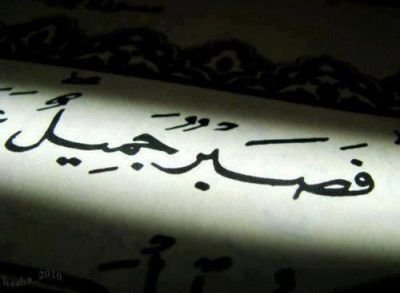 فَصَبْرٌ جَمِيلٌ
hosha_2010